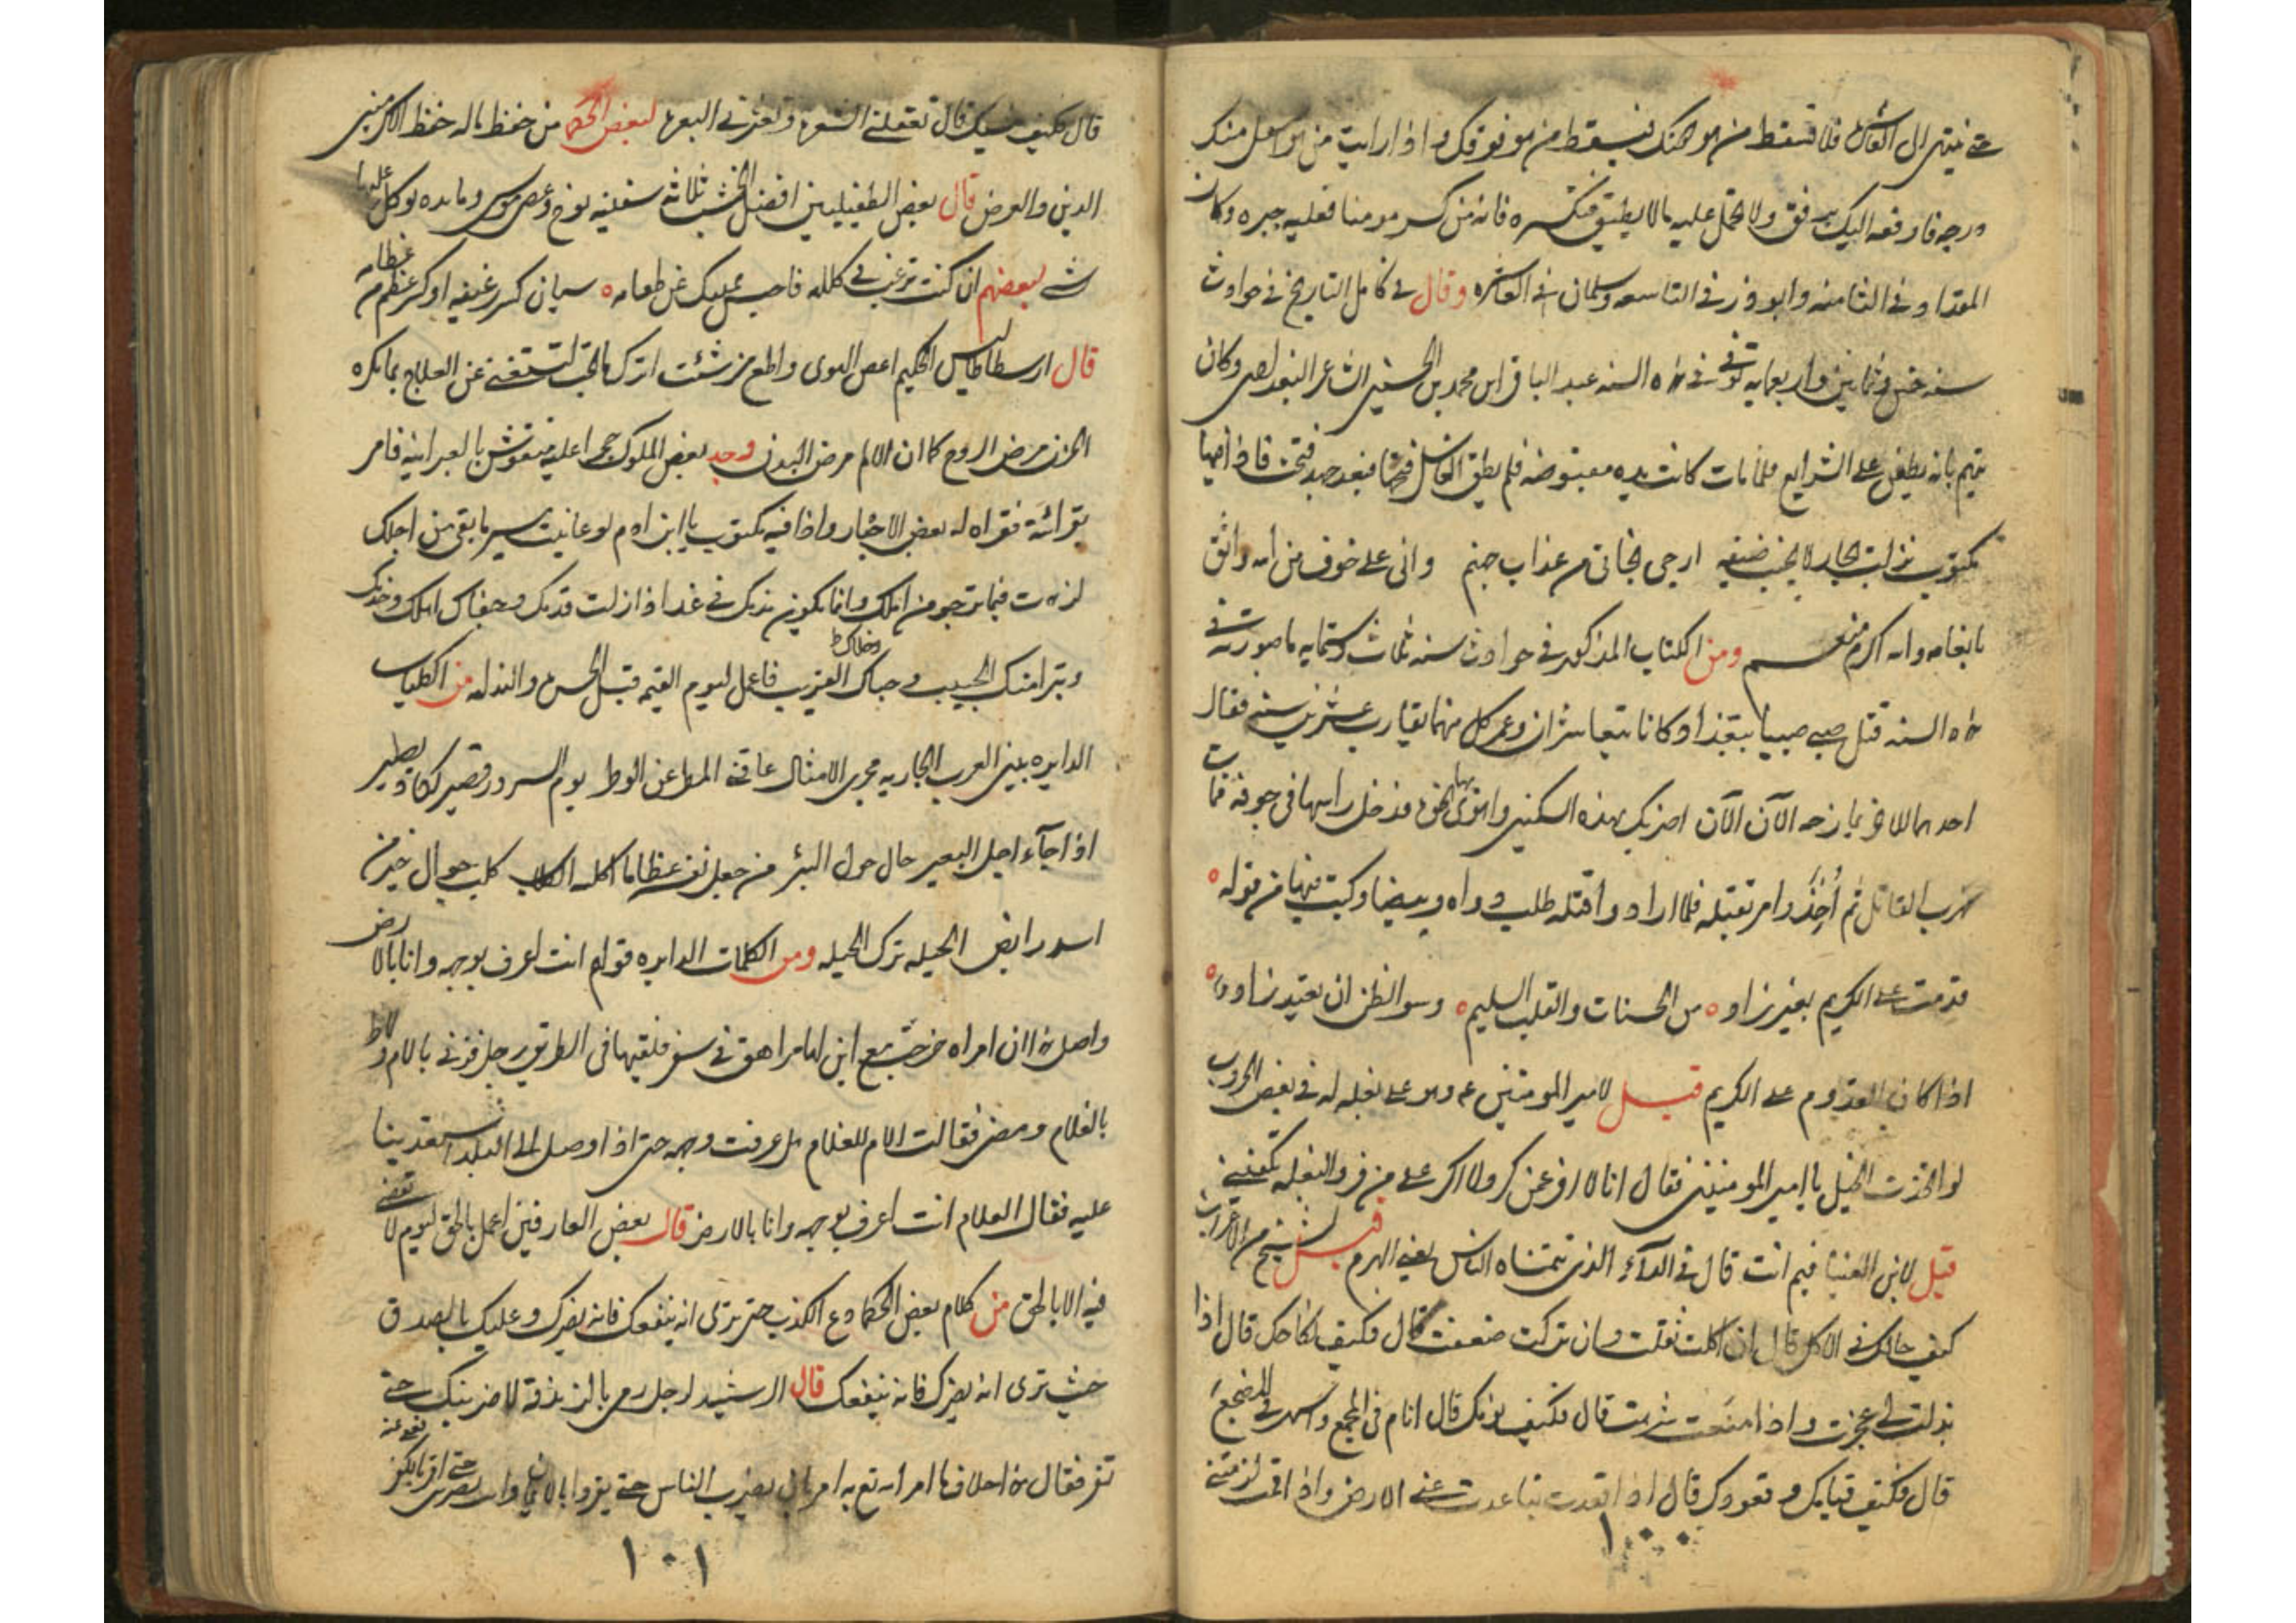 حتى ينتهى الى العاشره فلا تسقط من هو دونك فيسقطك من هو فوقك واذا رايت من هو اسفل منك
درجه فارفعه اليك برفق ولا تحمل عليه مالا يطيق فتكسره فانه من كسر مومنا فعليه جبره وكان
المقداد فى الثامنه وابو ذر فى التاسعه وسلمان فى العاشره وقال فى كامل التاريخ فى حوادث
سنه خمس وثمانين واربعمايه توفى فى هذه السنه عبد الباقى ابن محمد بن الحسين الشاعر البغدادى وكان
يتهم بانه يطعن على الشرايع فلما مات كانت يده مقبوضه فلم يطق الغاسل فتحها فبعد جهد فتحت فاذا فيها
مكتوب نزلت بجار لا يخيب ضيفه ارجى نجاتى من عذاب جهنم وانى على خوف من الله واثق
بانعامه والله اكرم منعم ومن الكتاب المذكور فى حوادث سنه ثلاث وستمايه ما صورته فى
هذه السنه قتل صبى صبيا ببغداد وكانا يتعاشران وعمر كل منهما يقارب عشرين سنه فقال
احدهما للاخر يمازحه الآن الآن اضربك بهذه السكين واهوى بها نحوه فدخل راسها فى جوفه فمات
هرب القاتل ثم أُخِذَ وامر بقتله فلما ارادوا قتله طلب دواه وبيضا وكتب فيها من قوله
قدمت على الكريم بغير زاد من الحسنات والقلب السليم وسو الظن ان يعتد زادا
اذا كان القدوم على الكريم قيل لامير المومنين عم وهو على بغله له فى بعض الحروب
لو اتخذت الخيل يا امير المومنين فقال انا لا افر عمن كر ولا اكر على من فر والبغله تكفينى
قيل لابن العينا فيم انت قال فى الدآء الذى يتمناه الناس يعنى الهرم قيل لشيخ من الاعراب
كيف حالك فى الاكل قال ان اكلت ثقلت وان تركت ضعفت قال فكيف نكاحك قال اذا
بذلت لى عجزت واذا منعت شرهت قال فكيف نومك قال انام فى المجمع واسهر فى المضجع
قال فكيف قيامك وقعودك قال اذا قعدت تباعدت عنى الارض واذا قمت لزمتنى
١٠٠
قال فكيف مشيك قال تعقلنى الشعره وتعثرنى البعره لبعض الحكما من حفظ ماله حفظ الاكرمين
الدين والعرض قال بعض الطفيليين افضل الخشب ثلاثه سفينه نوح وعصى موسى ومايده يوكل عليها
شى لبعضهم ان كنت ترغب فى كلامه فاحبس يديك عن طعامه سيان كسر رغيفه او كسر عظم من عظامه
قال ارسطاطاليس الحكيم اعص الهوى واطع من شئت اترك ما تحب لتستغنى عن العلاج بما تكره
الحزن مرض الروح كما ان الالم مرض البدن وجد بعض الملوك حجرا عليه منقوش بالعبرانيه فامر
بقرائته فقراه له بعض الاحبار واذا فيه مكتوب يا ابن ادم لو عاينت يسير ما بقى من اجلك
لزهدت فيما ترجو من املك وانما يكون ندمك فى غد اذا زلت قدمك وجفاك اهلك وخدمك
وتبرا منك الحبيب وجفاك القريب فاعمل ليوم القيمه قبل الحسره والندامه من الكلمات
الدايره بين العرب الجاريه مجرى الامثال عاقنى المطر عن الوطر يوم السرور قصير لكاد يطير
اذا جآء اجل البعير حال حول البئر من جعل نفسه عظاما اكله الكلاب كلب جوال خير من
اسد رابض الحيله ترك الحيله ومن الكلمات الدايره قولهم انت اعرف بوجهه وانا بالارض
واصل هذا ان امراه خرجت مع ابن لها مراهق فى سفر فلقيها فى الطريق رجل فزنى بالام ولاط
بالغلام ومضى فقالت الام للغلام هل عرفت وجهه حتى اذا وصل الى البلد استعدينا
عليه فقال الغلام انت اعرف بوجهه وانا بالارض قال بعض العارفين اعمل بالحق ليوم لا تقضى
فيه الا بالحق من كلام بعض الحكما دع الكذب حتى ترى انه ينفعك فانه يضرك وعليك بالصدق
حيث ترى انه يضرك فانه ينفعك قال الرشيد لرجل رمى بالزندقه لاضربنك حتى
تقر فقال هذا خلاف ما امر الله تع به امر ان يضرب الناس حتى يقروا بالايمان وانت تضربنى حتى اقر بالكفر
١٠١